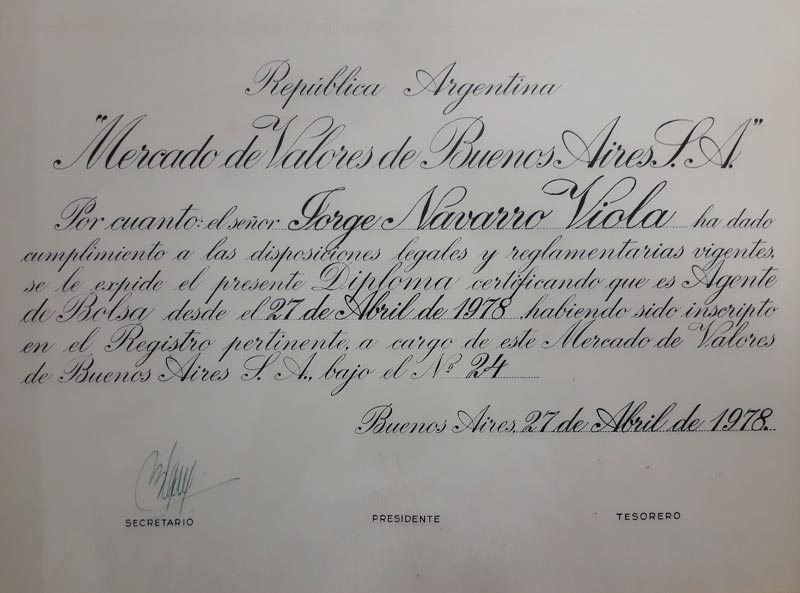 República Argentina
"Mercado de Valores de Buenos Aires S. A."
Por cuanto: el señor Jorge Navarro Viola ha dado
cumplimiento a las disposiciones legales y reglamentarias vigentes,
se le expide el presente Diploma certificando que es Agente
de Bolsa desde el 27 de Abril de 1978 habiendo sido inscripto
en el Registro pertinente, a cargo de este Mercado de Valores
de Buenos Aires S. A., bajo el Nº 24
Buenos Aires, 27 de Abril de 1978.
SECRETARIO PRESIDENTE TESORERO